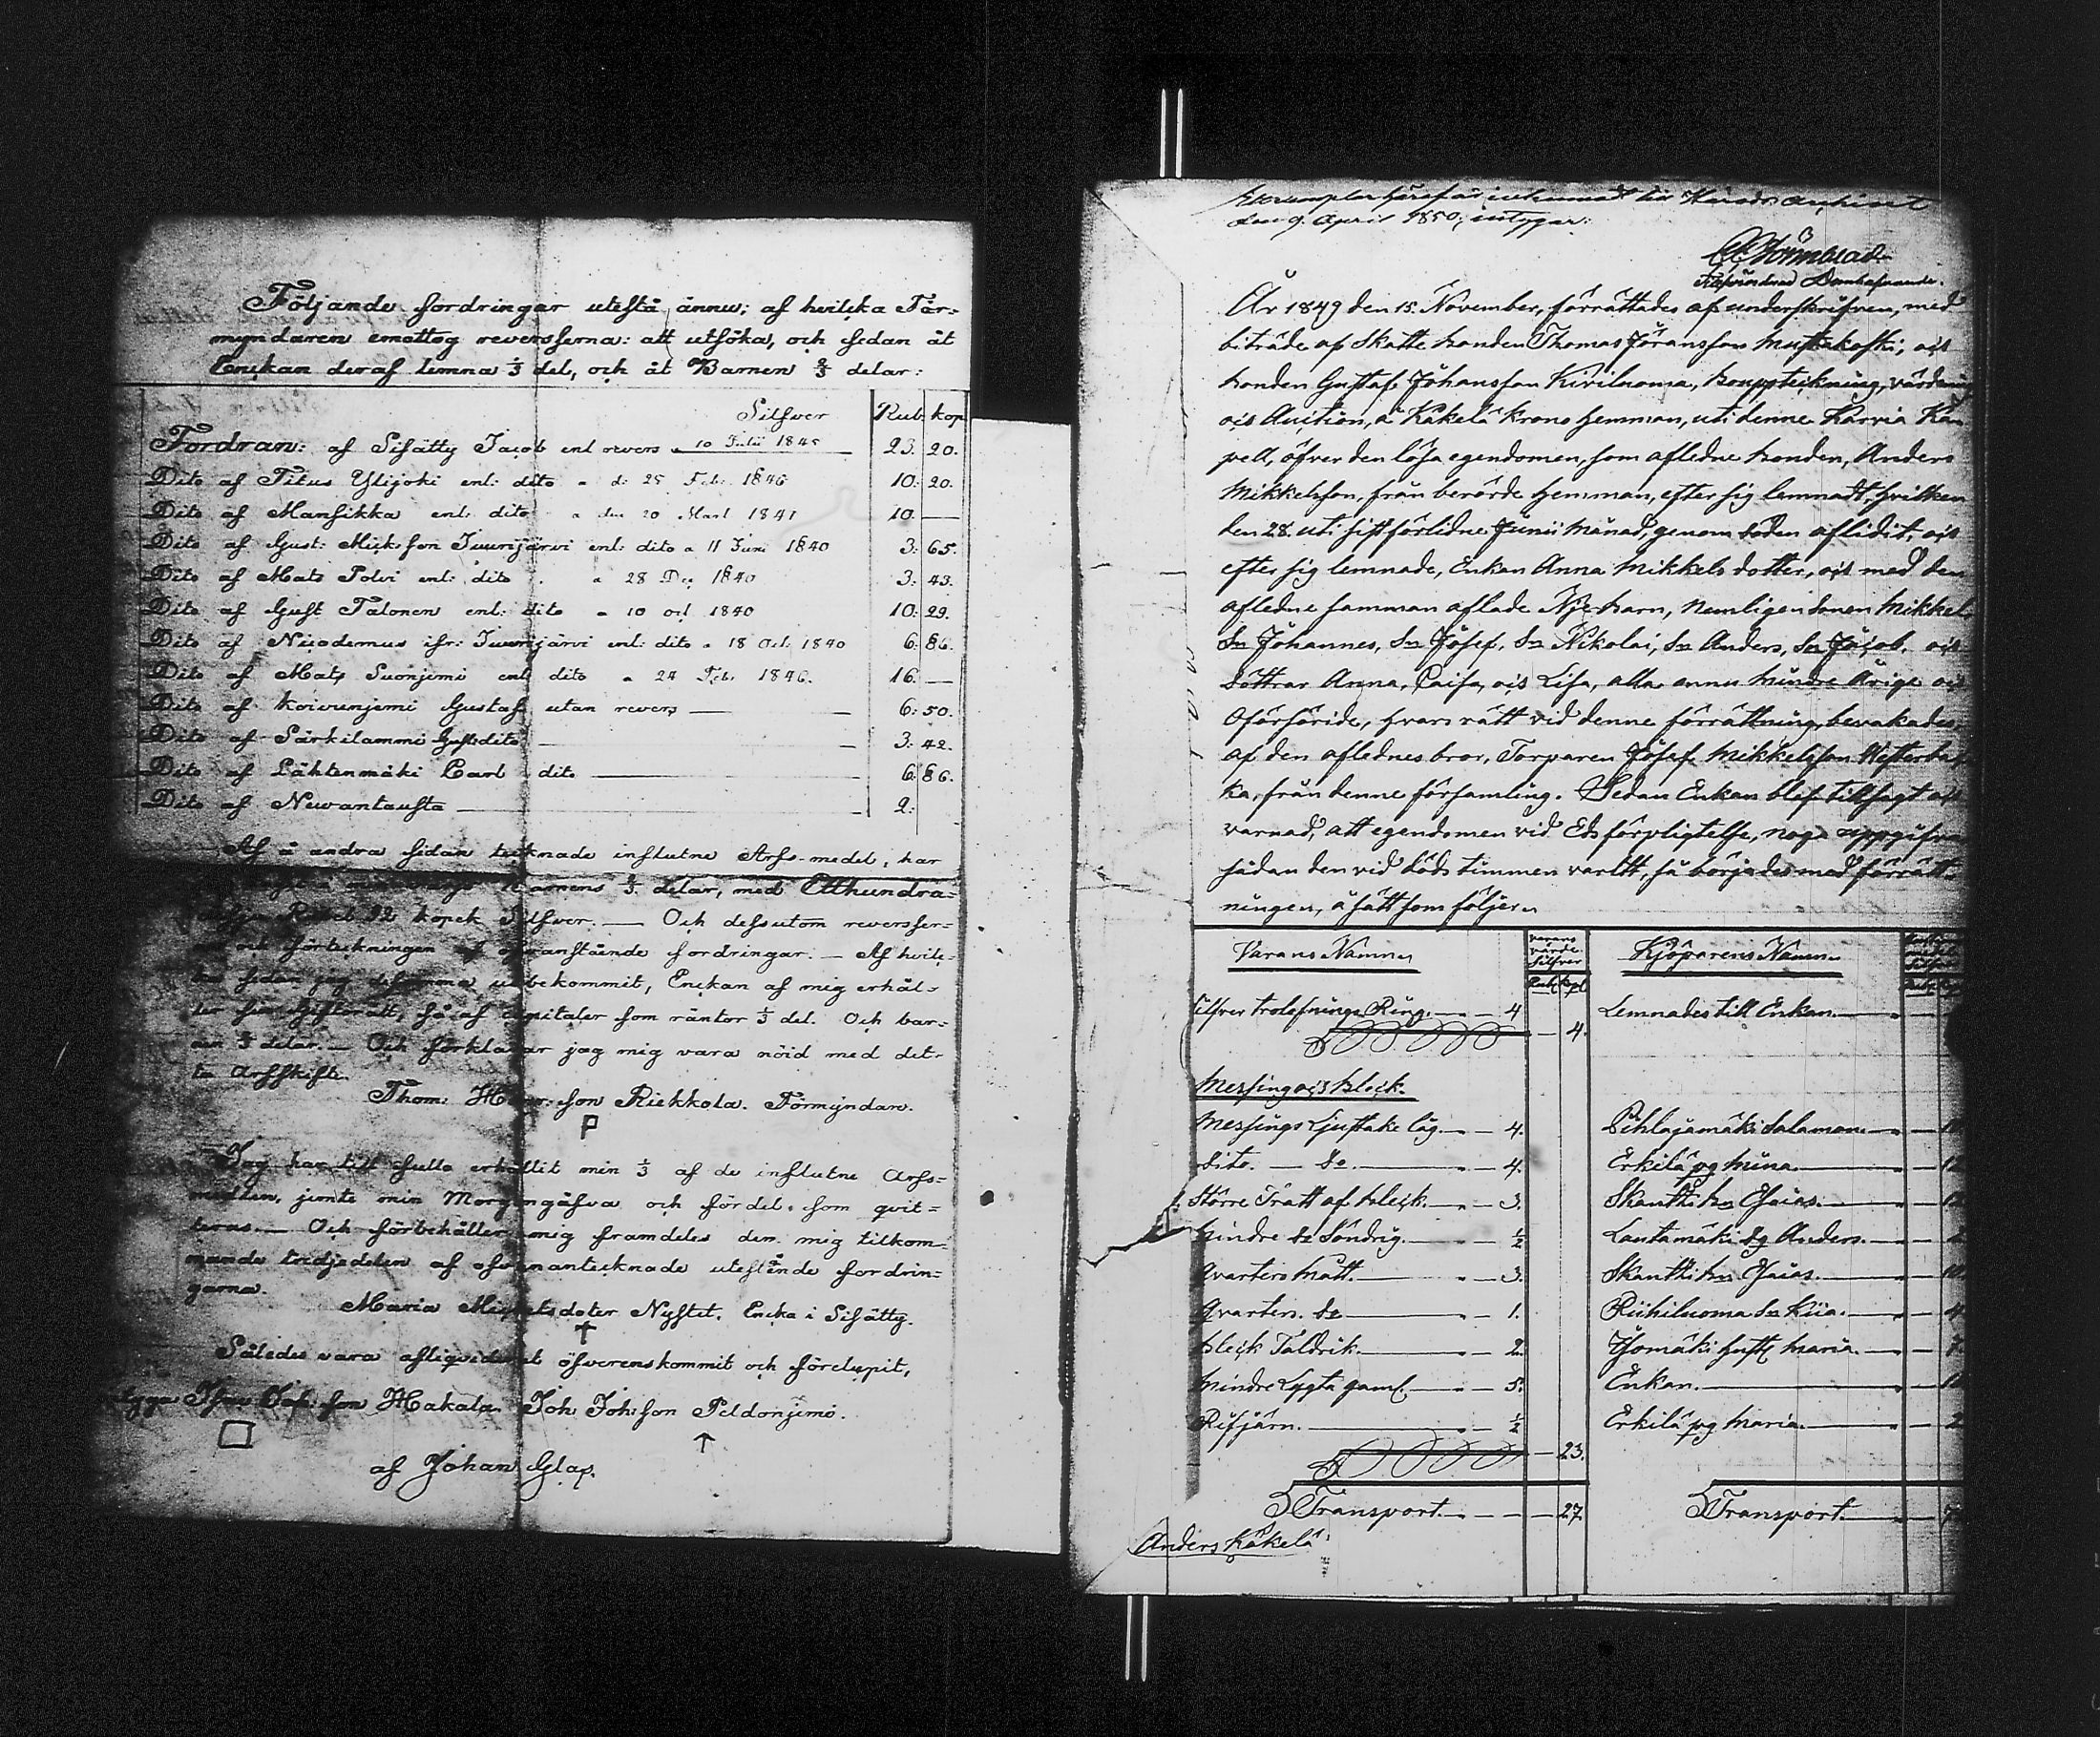 Följande fordringar utestå ännu; af hvilcka För-
myndaren emottog reversserna: att utsöka, och sedan åt
Enckan deraf lemna 1/3 del, och åt Barnen 2/3 delar:
Silfver Rub kop
Fordran: af Sisätty Jacob enl revers a 10 Julii 1845 23. 20.
Dito af Titus Ylijoki enl: dito a d: 25 Febr. 1846 10: 20.
Dito af Mansikka enl: dito a den 20 Mart 1841 10. —
Dito af Gust: Mickson Juurijärvi enl: dito a 11 Juni 1840 3: 65.
Dito af Mats Polvi enl: dito a 28 Dec 1840 3: 43.
Dito af Gust Talonen enl: dito a 10 oct 1840 10: 29.
Dito af Nicodemus Juurijärvi enl: dito a 18 Oct. 1840 6: 86.
Dito af Mats Suonjemi enl dito a 24 Febr 1846. 16. —
Dito af Koivunjemi Gustaf utan revers — 6: 50.
Dito af Särkilammi Gust dito — 3: 42.
Dito af Lähtenmäki Carl dito — 6: 86.
Dito af Newantausta — 2:
Af å andra sidan tecknade influtne Arfs-medel, har
Barnens 2/3 delar, med Etthundra-
Rubel 92 kopek Silfver. — Och dessutom reversser-
och förteckningen af ofvanstående fordringar. — Af hvilc-
ka sedan jag desamma utbekommit, Enckan af mig erhål-
ler sin Giftorätt, så af Capitaler som räntor 1/3 del. Och bar-
nen 2/3 delar. — Och förklarar jag mig vara nöid med det-
ta Arfsskifte.
Thom: son Riekkola. Förmyndare.
Jag har till fullo erhållit min 1/3 af de influtne Arfs-
medlen, jemte min Morgongåfva och fördel, som qvit-
teras. — Och förbehåller mig framdeles den mig tilkom-
mande tredjedelen af ofvanantecknade utestående fordrin-
garna.
Maria Mickelsdoter Nystet. Encka i Sisätty.
Således vara afliqviderat öfverenskommit och förelupit,
son Hakala Joh Johsson Peldonjemi.
af Johan Glas.
Exemplar häraf är inlemnadt til Härads archivet
den 9. April 1850; intygar:
Domhafvande.
År 1849 den 15. November, förrättades af underskrifven, med
biträde af Skatte bonden Thomas Jöransson Mustakoski, och
bonden Gustaf Johansson Kiviluoma, bouppteckning, värdering
och Auction, å Käkelä krono hemman, uti denne Karvia Ka-
pell, öfver den lösa egendomen, som afledne bonden, Anders
Mikkelsson, från berörde hemman, efter sig lemnadt, hvilken
den 28. uti sistförlidne Junii månad, genom döden aflidit, och
efter sig lemnade, Enkan Anna Mikkels dotter, och med den
afledne samman aflade Nije barn, nemligen sonen Mikkel,
Sn Johannes, Sn Josef, Sn Nikolai, Sn Anders, Sn Jacob, och
Döttrar Anna, Caisa, och Lisa, alla ännu Mindre Årige och
Oförföride, hvars rätt vid denne förrättning, bevakades,
af den aflednes bror, Torparen Josef Mikkelsson
ka, från denne församling. Sedan Enkan blef tillsagt och
varnad, att egendomen vid Eds förpligtelse, noga uppgifva
sådan den vid döds timmen varitt, så börjades med förrätt-
ningen, å sätt som följer
Varans Namn varans värde Silfver Rub. kop. Kjöparens Namn
Silfver trolofnings Ring. — 4 Lemnades till Enkan.
4.
Messing och bleck.
Messings Ljustake låg. — 4. Pihlajamäki Salamon.
dito. — do. — 4. Erkilä pg Mina.
Större Tratt af bleck. — 3. Skantti bn Esaias.
Mindre do Söndrig. — 1/2 Lautamäki dg Anders.
Qvarters Mått. — 3. Skantti bn Esaias.
Qvarters. do — 1. Riihiluoma
bleck Taldrik. — 2. Isomäki Maria.
Mindre Lygta gaml. — 5. Enkan.
Rifjärn. — 1/2 Erkilä pg Maria.
23.
Transport. — 27. Transport.
Anders Käkelä